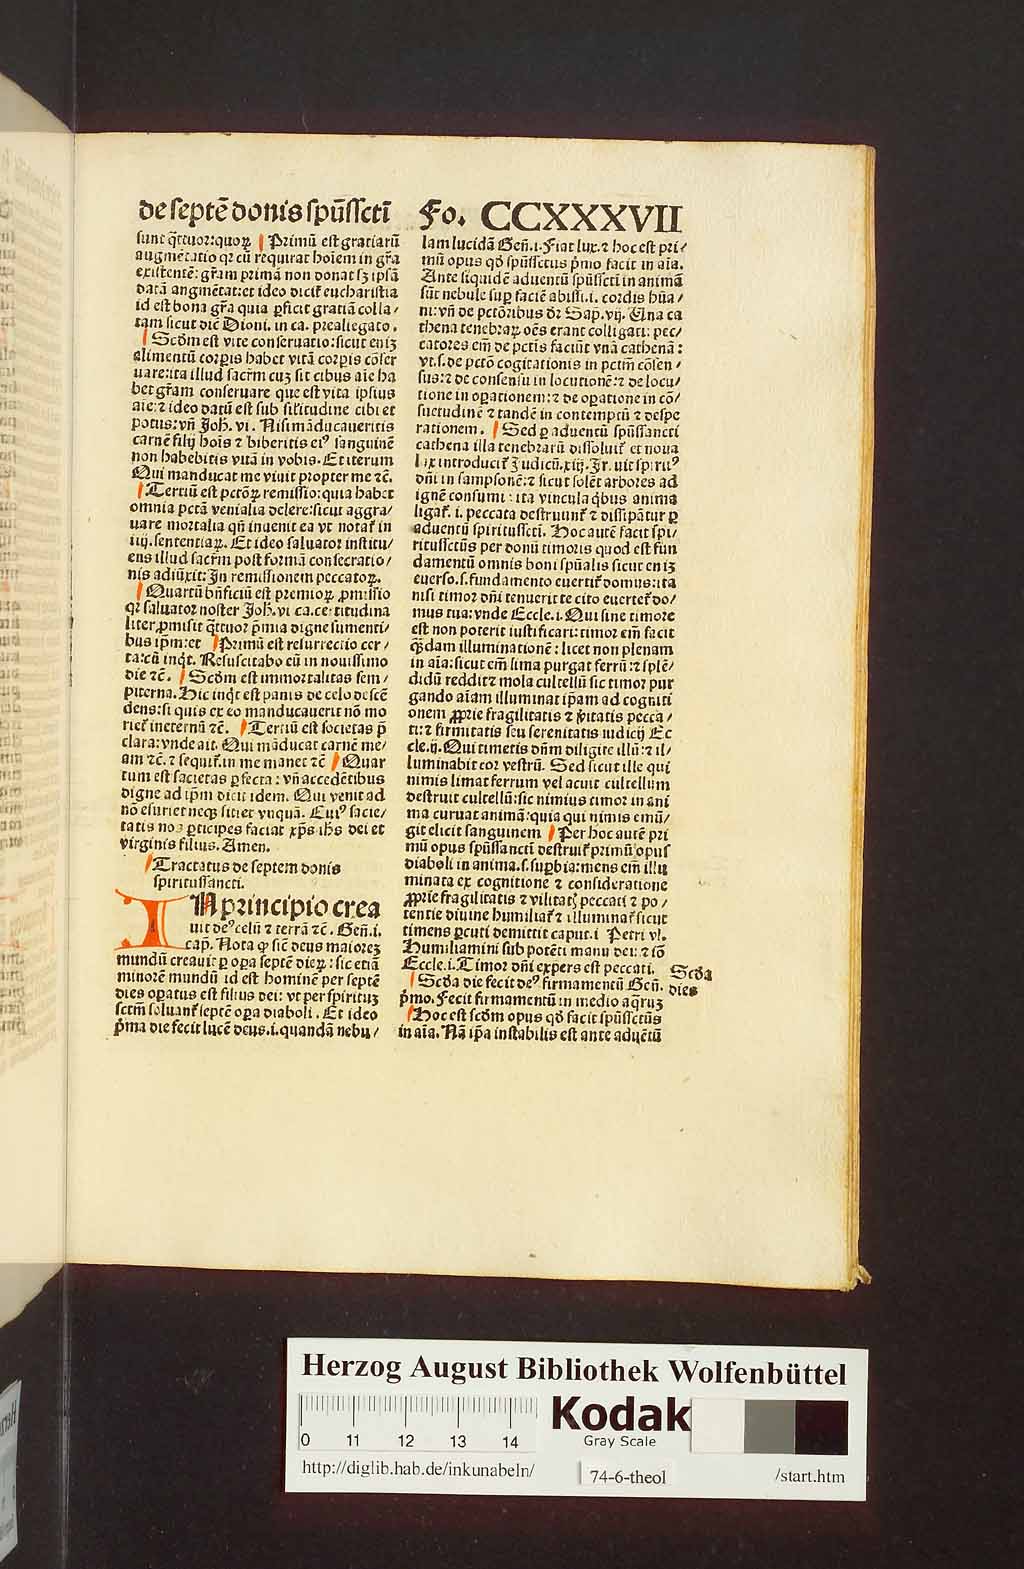 de septē donis spūsscti Fo. CCXXXVII
sunt q̄ttuor: quoꝝ Primū est gratiarū
augmētatio qꝛ cū requirat hoīem in gr̄a
existentē: gr̄am primā non donat sꝫ ipsā
datā angmētat: et ideo dicit̄ eucharistia
id est bona gr̄a quia ꝑficit gratiā colla⸗
tam sicut dic̄ Dioni. in ca. preallegato.
Scd̄m est vite conseruatio: sicut eniꝫ
alimentū corꝑis habet vitā corꝑis cōser
uare: ita illud sacr̄m cuꝫ sit cibus aīe ha
bet gr̄am conseruare que est vita ipsius
aīe: ⁊ ideo datū est sub sil̄itudine cibi et
potus: vn̄ Joh. vi. Nisi māducaueritis
carnē filij hoīs ⁊ biberitis eiꝰ sanguinē
non habebitis vitā in vobis. Et iterum
Qui manducat me viuit propter me ⁊c̄.
Tertiū est pctōꝝ remissio: quia habet
omnia pctā venialia delere: sicut aggra⸗
uare mortalia qn̄ inuenit ea vt notat̄ in
iiij. sententiaꝝ. Et ideo saluator institu⸗
ens illud sacr̄m post formā consecratio⸗
nis adiūxit: In remissionem peccatoꝝ.
Quartū bn̄ficiū est premioꝝ ꝓmissio
qꝛ saluator noster Joh. vi ca. certitudina
liter ꝓmisit q̄ttuor p̄mia digne sumenti⸗
bus ip̄m: et Primū est resurrectio cer⸗
ta: cū inqt̄. Resuscitabo eū in nouissimo
die ⁊c̄. Scd̄m est immortalitas sem⸗
piterna. Hic inqt̄ est panis de celo descē
dens: si quis ex eo manducauerit nō mo
riet̄ ineternū ⁊c̄. Tertiū est societas p̄
clara: vnde ait. Qui māducat carnē me⸗
am ⁊c̄. ⁊ sequit̄. in me manet ⁊c̄ Quar
tum est sacietas ꝑfecta: vn̄ accedētibus
digne ad ip̄m dicit idem. Qui venit ad
nō esuriet neqꝫ sitiet vnquā. Cuiꝰ sacie⸗
tatis nos ꝑticipes faciat xp̄s ih̄s dei et
virginis filius. Amen.
Tractatus de septem donis
spiritussancti.
IN principio crea
uit deꝰ celū ⁊ terrā ⁊c̄. Gen̄. i.
cap̄. Nota ꝙ sic̄ deus maioreꝫ
mundū creauit ꝑ oꝑa septē dieꝝ: sic etiā
minorē mundū id est hominē per septē
dies oꝑatus est filius dei: vt per spirituꝫ
sctm̄ soluant̄ septē oꝑa diaboli. Et ideo
p̄ma die fecit lucē deus. i. quandā nebu⸗
lam lucidā Gen̄. i. Fiat lux. ⁊ hoc est pri⸗
mū opus qd̄ spūssctus p̄mo facit in aīa.
Ante siquidē aduentū spūsscti in animā
sūt nebule suꝑ faciē abissi. i. cordis hūa⸗
ni: vn̄ de pctōribus dr̄: Sap. vij. Una ca
thena tenebraꝝ oēs erant colligati: pec⸗
catores em̄ de pctīs faciūt vnā cathenā:
vt. s. de pctō cogitationis in pctm̄ cōsen⸗
sus: ⁊ de consensu in locutionē: ⁊ de locu⸗
tione in oꝑationem: ⁊ de oꝑatione in cō⸗
suetudinē ⁊ tandē in contemptū ⁊ despe
rationem. Sed ꝑ aduentū spūssancti
cathena illa tenebrarū dissoluit̄ et noua
lux introducit̄ Judicū. xiij. Jr. uit spiritꝰ
dn̄i in sampsonē: ⁊ sicut solēt arbores ad
ignē consumi: ita vincula q̇bus anima
ligat̄. i. peccata destruunt̄ ⁊ dissipātur ꝑ
aduentū spiritussctī. Hoc autē facit spi⸗
ritussctūs per donū timoris quod est fun
damentū omnis boni spūalis sicut eniꝫ
euerso. s. fundamento euertit̄ domus: ita
nisi timor dn̄i tenuerit te cito euertet̄ do⸗
mus tua: vnde Eccle. i. Qui sine timore
est non poterit iustificari: timor em̄ facit
q̄dam illuminationē: licet non plenam
in aīa: sicut em̄ lima purgat ferrū: ⁊ splē⸗
didū reddit ⁊ mola cultellū sic timor pur
gando aīam illuminat ip̄am ad cogniti
onem ꝓprie fragilitatis ⁊ prauitatis pecca⸗
ti: ⁊ firmitatis seu serenitatis iudicij Ec
cle. ij. Qui timetis dn̄m diligite illū: ⁊ il⸗
luminabit cor vestrū. Sed sicut ille qui
nimis limat ferrum vel acuit cultellum
destruit cultellū: sic nimius timor in ani
ma curuat animā: quia qui nimis emū⸗
git elicit sanguinem Per hoc autē pri
mū opus spūssanctī destruit̄ primū opus
diaboli in anima. s. suꝑbia: mens em̄ illu
minata ex cognitione ⁊ consideratione
ꝓprie fragilitatis ⁊ vilitatꝭ peccati ⁊ po⸗
tentie diuine humiliat̄ ⁊ illuminat̄ sicut
timens ꝑcuti demittit caput. i Petri vl.
Humiliamini sub potēti manu dei: ⁊ iō
Eccle. i. Timor dn̄i expers est peccati.
Scd̄a die fecit deꝰ firmamentū Gen̄.
p̄mo. Fecit firmamentū in medio aq̄ruꝫ
Hoc est scd̄m opus qd̄ facit spūssctūs
in aīa. Nā ip̄a instabilis est ante aduētū
Scd̄a
dies
Herzog August Bibliothek Wolfenbüttel
0 11 12 13 14
Kodak
Gray Scale
http://diglib.hab.de/inkunabeln/ 74-6-theol /start.htm